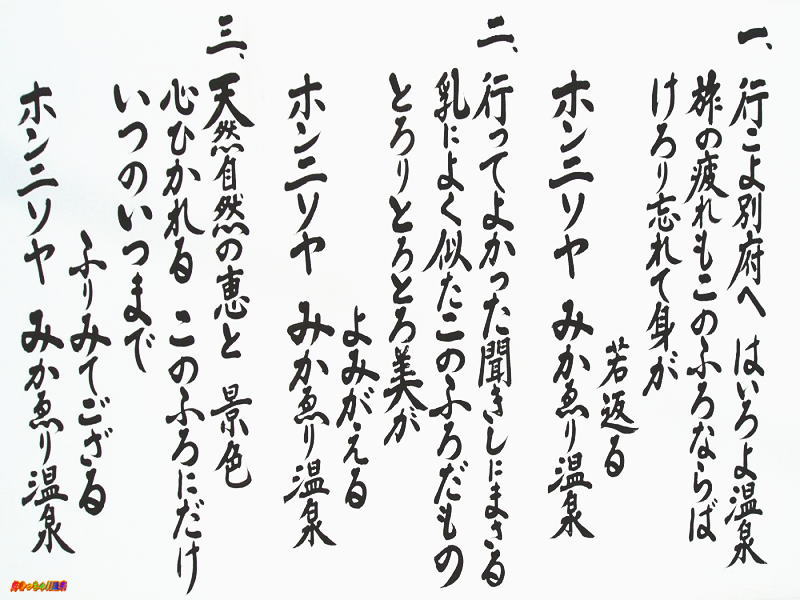 一、行こよ別府へ はいろよ温泉
旅の疲れもこのふろならば
けろり忘れて身が
若返る
ホンニソヤ みかゑり温泉
二、行ってよかった聞きしにまさる
乳によく似たこのふろだもの
とろりとろとろ美が
よみがえる
ホンニソヤ みかゑり温泉
三、天然自然の恵と 景色
心ひかれる このふろにだけ
いつのいつまで
ふりみてござる
ホンニソヤ みかゑり温泉